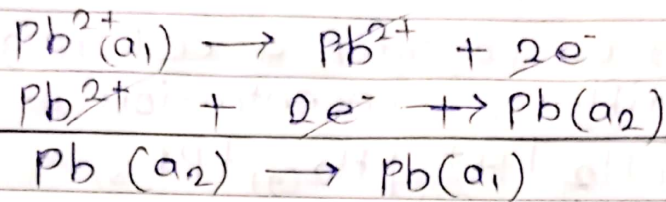 Pb²⁺(a₁) → Pb²⁺ + 2e⁻
Pb²⁺ + 2e⁻ → Pb(a₂)
Pb (a₂) → Pb(a₁)